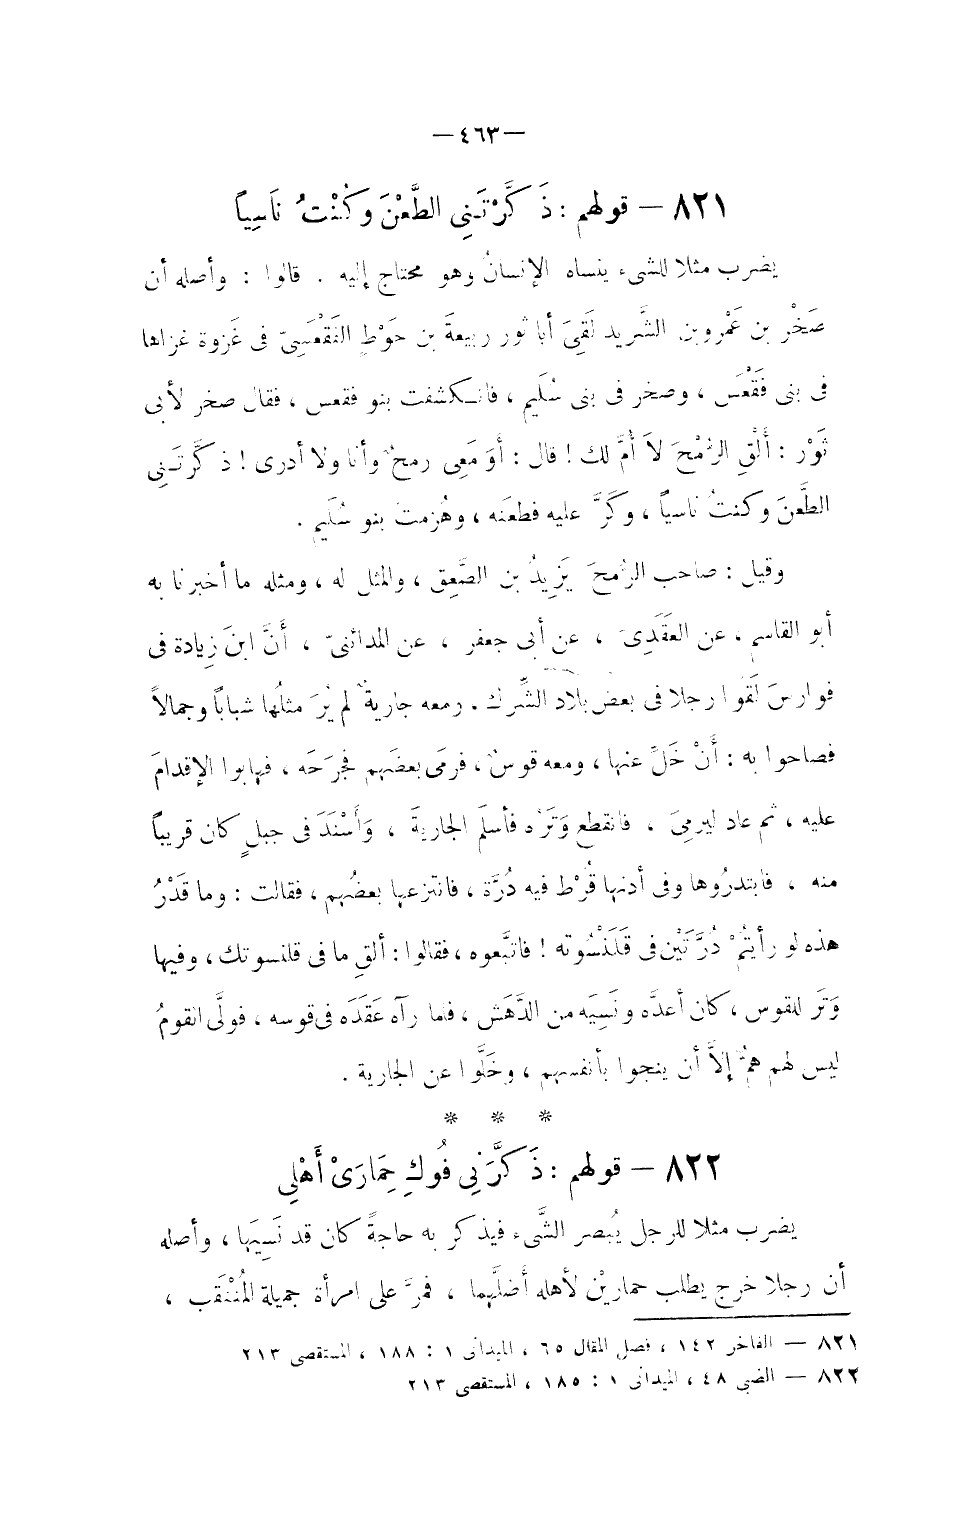 — ٤٦٣ —
٨٢١ — قولهم : ذَكَّرْتَنِى الطَّعْنَ وَكُنْتُ نَاسِياً
يضرب مثلا للشىء ينساه الإنسانُ وهو محتاج إليه . قالوا : وأصله أن
صَخْر بن عَمْرو بن الشَّريد لَقِىَ أبا ثور ربيعةَ بن حَوْطٍ الفَقْعَسِىّ فى غَزوة غزاها
فى بنى فَقْعَس ، وصخر فى بنى سُلَيم ، فانكشفت بنو فقعس ، فقال صخر لأبى
ثَوْر : أَلْقِ الرُّمْحَ لاَ أُمَّ لك ! قال : أوَ مَعِى رمحٌ وأنا ولا أدرى ! ذكَّرتَنِى
الطَّعنَ وكنتُ ناسياً ، وكَرَّ عليه فطعنَه ، وهُزمتْ بنو سُلَيم .
وقيل : صاحب الرُّمحَ يَزِيدُ بن الصَّعِق ، والمثل له ، ومثله ما أخبرنا به
أبو القاسم ، عن العقَدِىّ ، عن أبى جعفر ، عن المدائنىّ ، أَنَّ ابنَ زِيادة فى
فوارسَ لَقُوا رجلا فى بعض بلاد الشِّرك . ومعه جاريةٌ لم يُرَ مثلُها شباباً وجمالاً
فصاحوا به : أَنْ خَلِّ عنها ، ومعه قوسٌ ، فرمَى بعضَهم فجَرَحَه ، فهابوا الإقدامَ
عليه ، ثم عاد ليرمِىَ ، فانقطع وَتَرُه فأسلَم الجاريةَ ، وَأَسْنَدَ فى جبلٍ كان قريباً
منه ، فابتدرُوها وفى أذنها قُرْط فيه دُرَّة ، فانتزعها بعضُهم ، فقالت : وما قَدْرُ
هذه لو رأيتُمْ دُرَّتَيْن فى قَلَنْسُوته ! فاتبَّعوه ، فقالوا : ألقِ ما فى قلنسوتك ، وفيها
وَتَر للقوس ، كان أعدَّه ونَسِيَه من الدَّهَش ، فلما رآه عَقَدَه فى قوسه ، فولَّى القومُ
ليس لهم همٌّ إلاَّ أن ينجوا بأنفسهم ، وخَلَّوا عن الجارية .
* * *
٨٢٢ — قولهم : ذَكَّرَنِى فُوكِ حِمَارَىْ أَهْلِى
يضرب مثلا للرجل يُبصر الشَّىء فيذكر به حاجةً كان قد نَسِيَها ، وأصله
أن رجلا خرج يطلب حمارَيْن لأهله أضلَّهما ، فمرَّ على امرأة جميلة المُنْتَقَب ،
٨٢١ — الفاخر ١٤٢ ، فصل المقال ٦٥ ، الميدانى ١ : ١٨٨ ، المستقصى ٢١٣
٨٢٢ — الضبى ٤٨ ، الميدانى ١ : ١٨٥ ، المستقصى ٢١٣